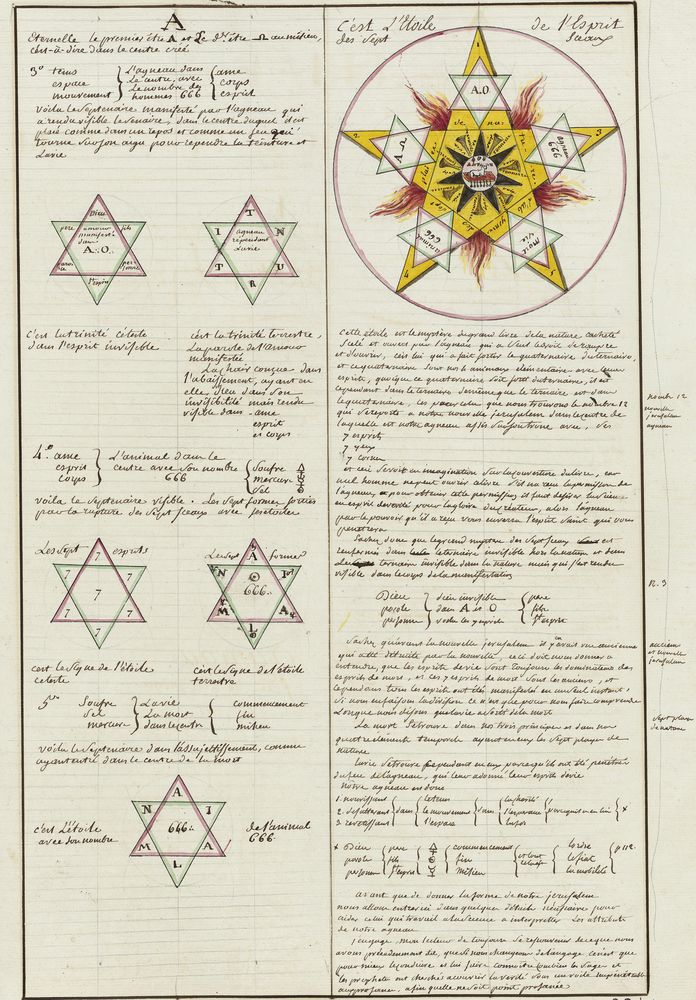 A
Eternelle le premier être A et Le d.er être Ω au milieu,
c'est-à-dire dans le centre créé
3º tems espace mouvement
L'agneau dans Le centre, avec Le nombre des hommes 666
ame corps esprit
voilà le Septenaire manifesté par l'agneau qui
a rendu visible le Senaire, dans le centre duquel il est
placé comme dans un repos et comme un feu qui
tourne sur son axe pour rependre la teinture et
La vie
Dieu
pere
fils
amour manifesté dans A.O.
parole
personne
St esprit
T
I
N
agneau rependant La vie
I
U
R
T
c'est la trinité céleste
dans l'esprit invisible
c'est la trinité terrestre,
La parole de l'amour
manifestée
La chair conçue dans
l'abaissement, ayant en
elle, Dieu dans son
invisibilité mais rendu
visible dans ame
esprit
et corps
4.º ame esprit corps
L'animal dans le centre avec son nombre 666
Soufre mercure Sel
voila le Septenaire visible. Les Sept formes sorties
par la rupture des Sept Sceaux avec
Les Sept esprits
7
7 7
7
7 7
7
Les Sept formes
A
N I
666.
M A
L
c'est le Signe de l'étoile
celeste
c'est le Signe de l'étoile
terrestre
5º Soufre Sel mercure
La vie La mort dans le centre
commencement fin milieu
voilà le Septenaire dans l'assujettissement, comme
ayant été dans le centre de la mort
c'est L'étoile
avec son nombre
A
N I
666.
M A
L
de l'animal
666.
C'est L'Etoile de l'Esprit
des Sept Sceaux
1
A.O
2
A.Ω
3
agneau 666
4
animal 666
5
Cette étoile est le mystère du grand livre de la nature cacheté
Scelé et ouvert par l'agneau qui a Seul le droit de rompre
et d'ouvrir, c'est lui qui a fait sortir le quaternaire du ternaire,
et ce quaternaire Sont nos 4 animaux élémentaires avec leur
esprit, quoique ce quaternaire Soit Sorti du ternaire, il est
cependant dans le ternaire de même que le ternaire est dans
le quaternaire, c'est par celui que nous trouvons le nombre 12
qui Se reporte a notre nouvelle jerusalem dans le centre de
laquelle est notre agneau assis Sur Son trône avec, Ses
7 esprits
7 yeux
7 cornes
et ceci Servoit en imagination Sur la couverture du livre, car
nul homme ne peut ouvrir a livre S'il n'a eu la permission de
l'agneau, et pour obtenir cette permission, il faut desirer
en esprit de verité pour la gloire du créateur, alors l'agneau
par le pouvoir qu'il a reçu vous enverra l'esprit Saint qui vous
penetrera
Sachez donc que le grand mystere des Sept Sceaux est
renfermé dans le ternaire invisible hors la nature et dans
Le ternaire invisible dans la nature mais qui S'est rendu
visible dans le corps de la manifestation
Dieu parole personne
dieu invisible dans A et O voila les 7 esprits
pere fils St esprit
Sachez qu'avant la nouvelle jerusalem il y en avait une ancienne
qui a été détruite par la nouvelle, ceci doit nous donner a
entendre, que les esprits de vie Sont toujours les dominateurs des
esprits de mort, et ces 7 esprits de mort Sont les anciens, et
cependant tous les esprits ont été manifestés en un Seul instant.
Si nous en faisons la division ce n'est que pour nous faire comprendre
Lorsque nous disons que la vie a Sorti de la mort
La mort Se trouve dans nos trois principes et dans nos
quatre elements temporels ayant en eux les Sept playes de
nature
La vie Se trouve cependant en eux parce qu'ils ont été penetrés
du feu de l'agneau, qui leur a donné, leur esprit de vie
Notre agneau est donc
1. nourrissant
2.
3.
le tems le mouvement l'espace
dans
+ Dieu parole personne
pere fils St esprit
commencement fin milieu
et tout
l'ordre le fiat
p 112.
avant que de donner la forme de notre jerusalem
nous allons entrer ici dans quelques détails nécessaires pour
aider celui qui travail a la Science a interpréter Les attributs
de notre agneau
j'engage, mon lecteur de toujours Se ressouvenir de ce que nous
avons précédemment dit, que Si nous changeons de langage c'est que
pour mieux le conduire et lui faire connaitre combien les Sages et
les prophetes ont cherchés a couvrir la verité Sous un voile impénétrable
aux profanes, afin qu'elle ne Soit point profanée
nombre 12
nouvelle
jerusalem
agneau
N. 3
ancienne
et nouvelle
jerusalem
Sept playes
de nature